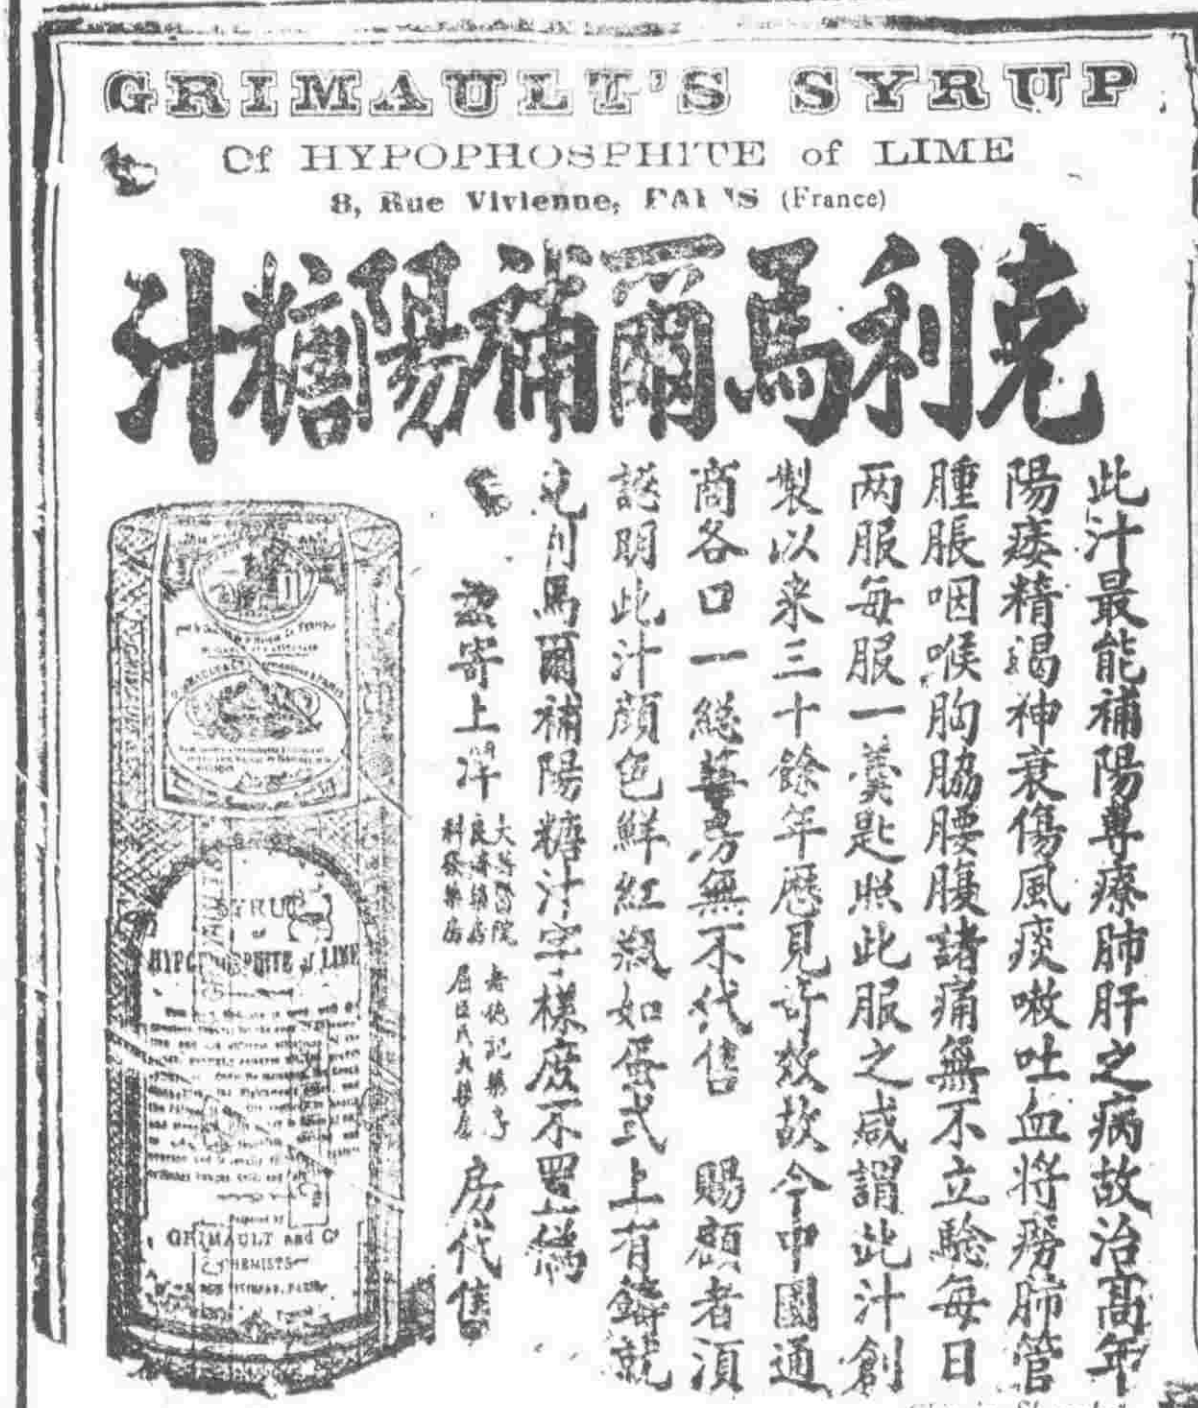 GRIMAULT'S SYRUP
Of HYPOPHOSPHITE of LIME
8, Rue Vivienne, PARIS (France)
克利馬爾補陽糖汁
此汁最能補陽尊療肺肝之病故治高年
陽痿精竭神衰傷風痰嗽吐血將癆肺管
腫脹咽喉胸脇腰腹諸痛無不立騐每日
两服每服一羹匙照此服之咸謂此汁創
製以来三十餘年歷見奇效故今中國通
商各口一總藥房無不代售 賜顧者湏
認明此汁顔色鮮紅瓶如蛋式上有鑄就
克利馬爾補陽糖汁字樣庶不罣偽
寄上洋
大英醫院
良濟藥房
科發藥房
老德記藥房
屈臣氏大藥房
房代售
SYRUP
of
HYPOPHOSPHITE of LIME
Prepared by
GRIMAULT and Co
CHEMISTS